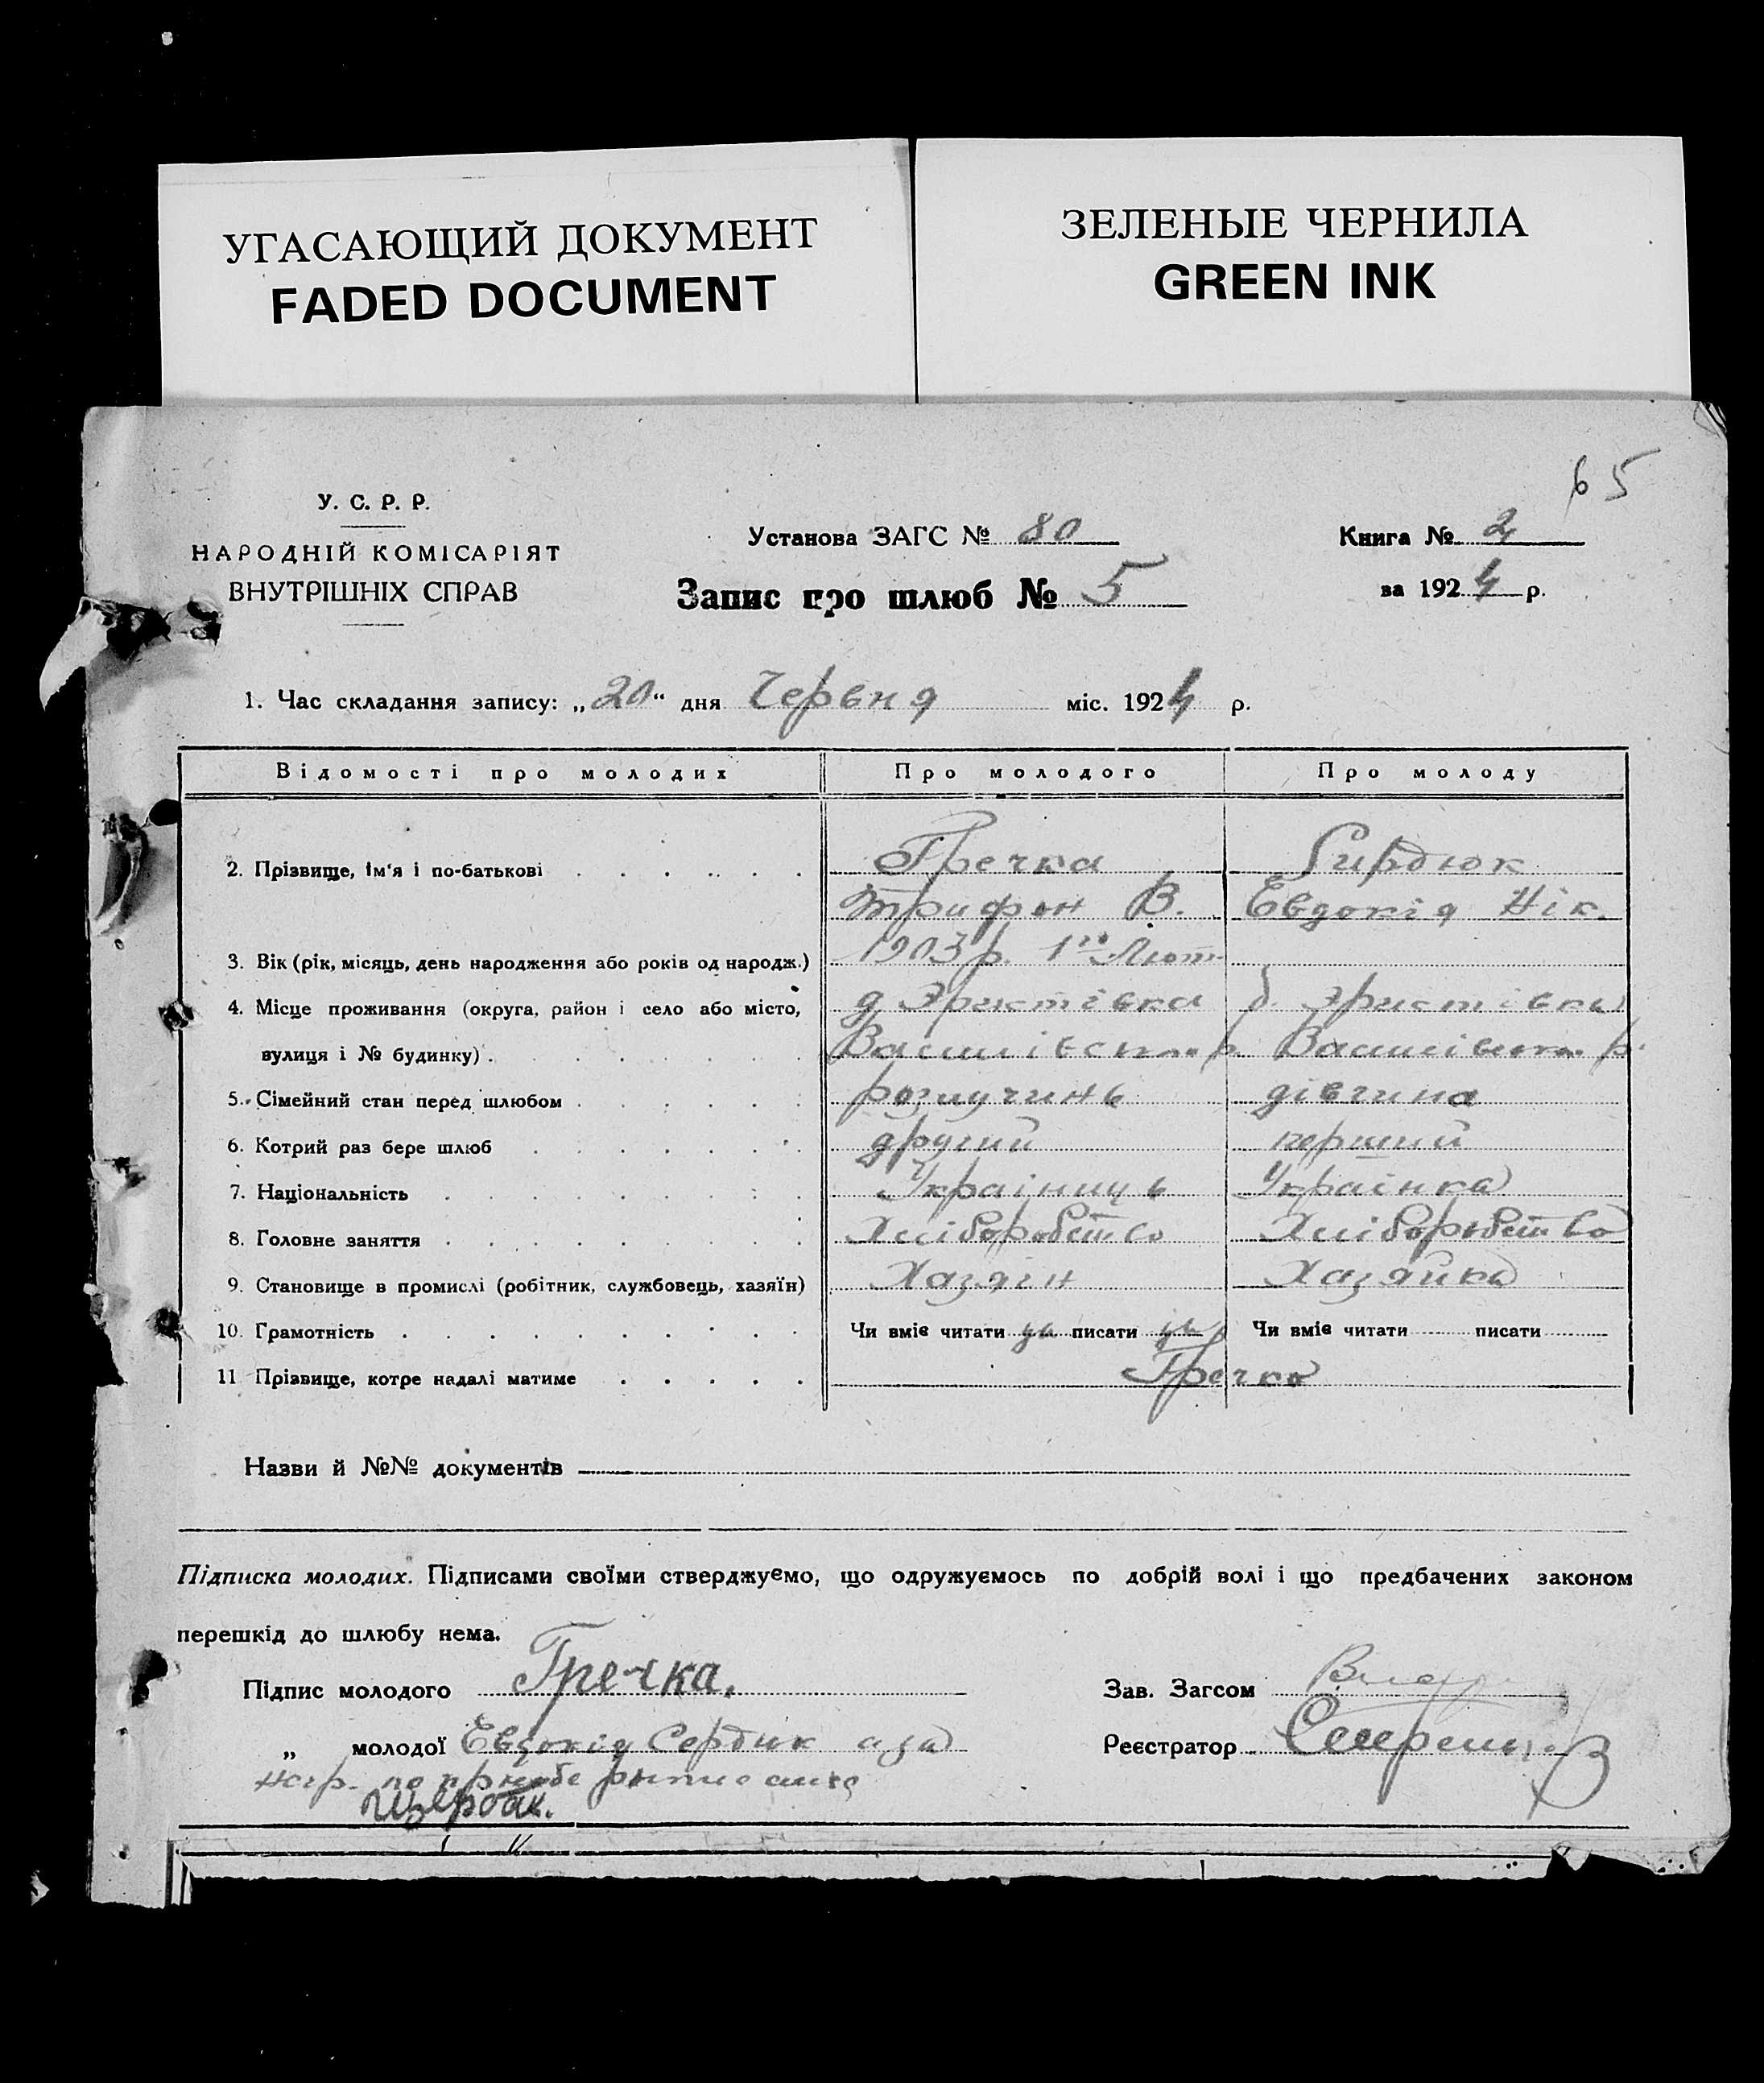 УГАСАЮЩИЙ ДОКУМЕНТ
FADED DOCUMENT
ЗЕЛЕНЫЕ ЧЕРНИЛА
GREEN INK
65
У. С. Р. Р.
НАРОДНІЙ КОМІСАРІЯТ
ВНУТРІШНІХ СПРАВ
Установа ЗАГС № 80
Запис про шлюб № 5
Книга № 2
за 1924 р.
1. Час складання запису: „20“ дня Червня міс. 1924 р.
Відомості про молодих Про молодого Про молоду
2. Прізвище, ім'я і по-батькові Гречка Сирдюк
Трифон В. Евдокія Нік.
3. Вік (рік, місяць, день народження або років од народж.) 1903 р. 1го Лют.
4. Місце проживання (округа, район і село або місто, д. Эристівка д. Эристівка
вулиця і № будинку) Василівськ. р. Василівськ. р.
5. Сімейний стан перед шлюбом розлучинь дівчина
6. Котрий раз бере шлюб другий перший
7. Національність Українищь Українка
8. Головне заняття Хліборобство Хліборобство
9. Становище в промислі (робітник, службовець, хазяїн) Хазяін Хазяйка
10. Грамотність Чи вміє читати да писати да Чи вміє читати писати
11. Прізвище, котре надалі матиме Гречко
Назви й №№ документів
Підписка молодих. Підписами своїми стверджуємо, що одружуємось по добрій волі і що предбачених законом
перешкід до шлюбу нема.
Підпис молодого Гречка.
Зав. Загсом
„ молодої Евдокія Сердюк а за
Реєстратор
негр. по прозьбе росписался
Щербак.